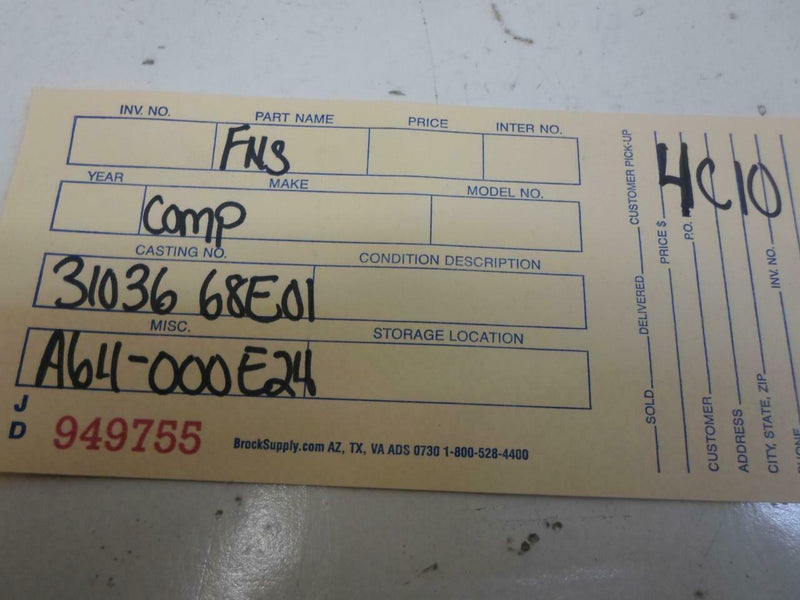 INV. NO. PART NAME PRICE INTER NO.
FNS
YEAR MAKE MODEL NO.
Comp
CASTING NO. CONDITION DESCRIPTION
31036 68E01
MISC. STORAGE LOCATION
A64-000E24
J
D
949755
BrockSupply.com AZ, TX, VA ADS 0730 1-800-528-4400
SOLD DELIVERED CUSTOMER PICK-UP
PRICE $
P.O.
CUSTOMER
ADDRESS INV. NO.
CITY, STATE, ZIP
PHONE
4C10